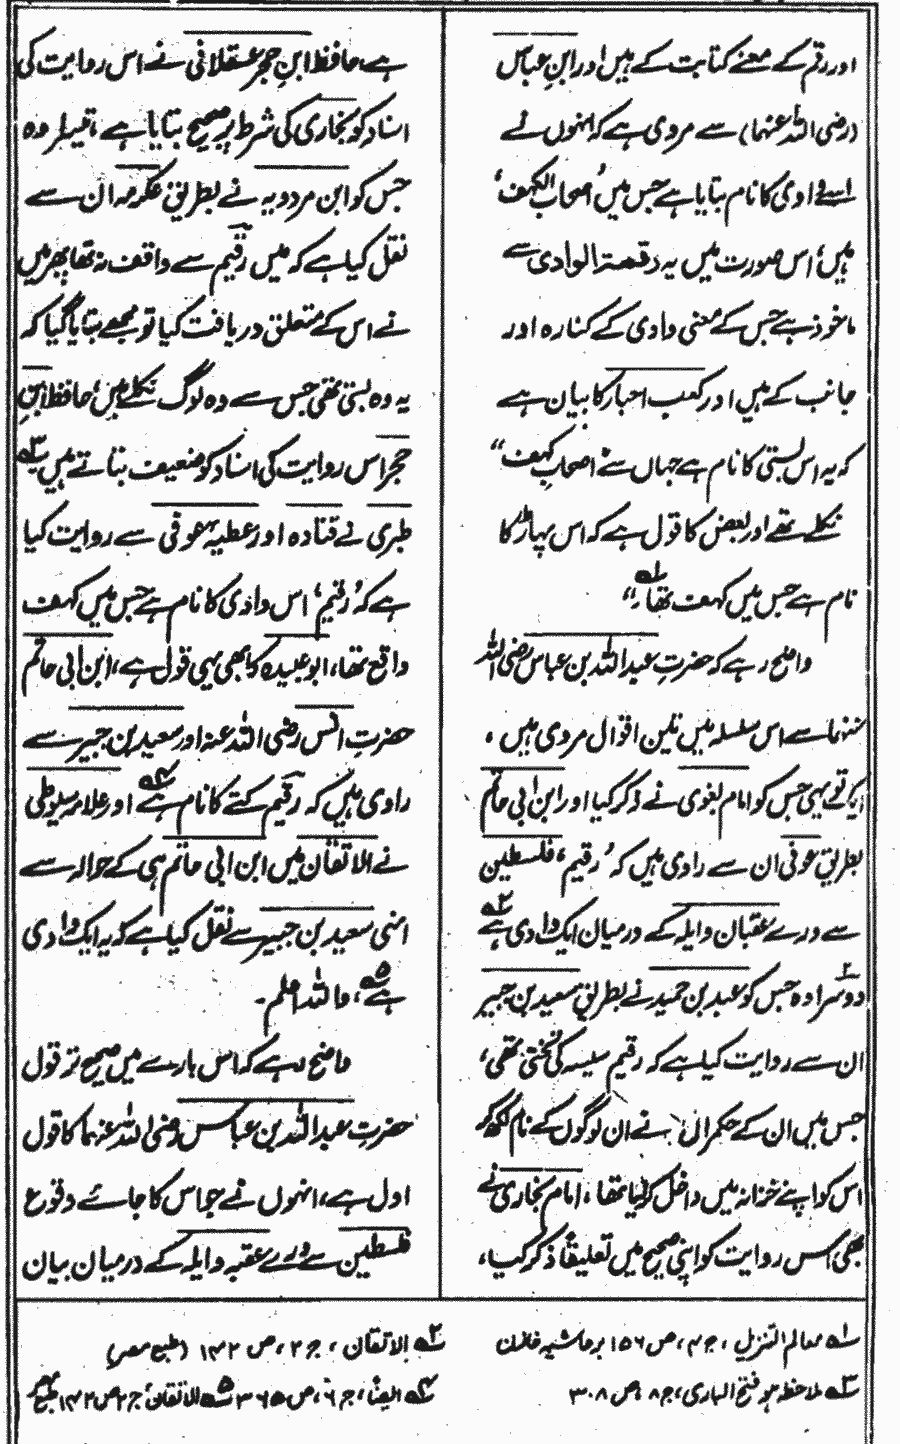 اور رقم کے معنے کتابت کے ہیں اور ابنِ عباس
(رضی اللہ عنہما) سے مروی ہے کہ انہوں نے
اسے وادی کا نام بتایا ہے جس میں ’اصحاب الکہف‘
ہیں، اس صورت میں یہ رقمۃ الوادی سے
ماخوذ ہے جس کے معنی وادی کے کنارہ اور
جانب کے ہیں اور کعب احبار کا بیان ہے
کہ یہ اس بستی کا نام ہے جہاں سے ”اصحاب کہف“
نکلے تھے اور بعض کا قول ہے کہ اس پہاڑ کا
نام ہے جس میں کہف تھا۔“ ؎۱
واضح رہے کہ حضرتِ عبد اللہ بن عباس رضی اللہ
عنہما سے اس سلسلہ میں تین اقوال مروی ہیں،
ایک تو یہی جس کو امام بغوی نے ذکر کیا اور ابن ابی حاتم
بطریق عوفی ان سے راوی ہیں کہ ’رقیم‘ فلسطین
سے ورے عقبان وایلہ کے درمیان ایک وادی ہے ؎۲
دوسرا وہ جس کو عبد بن حمید نے بطریق سعید بن جبیر
ان سے روایت کیا ہے کہ رقیم سیسہ کی تختی تھی،
جس میں ان کے حکمراں نے ان لوگوں کے نام لکھ کر
اس کو اپنے خزانہ میں داخل کر لیا تھا، امام بخاری نے
بھی اس روایت کو اپنی صحیح میں تعلیقاً ذکر کیا ہے،
ہے، حافظ ابنِ حجر عسقلانی نے اس روایت کی
اسناد کو بخاری کی شرط پر صحیح بتایا ہے، تیسرا وہ
جس کو ابن مردویہ نے بطریق عکرمہ ان سے
نقل کیا ہے کہ میں رقیم سے واقف نہ تھا پھر میں
نے اس کے متعلق دریافت کیا تو مجھے بتایا گیا کہ
یہ وہ بستی تھی جس سے وہ لوگ نکلے ہیں، حافظ ابنِ
حجر اس روایت کی اسناد کو ضعیف بتاتے ہیں ؎۳
طبری نے قتادہ اور عطیہ عوفی سے روایت کیا
ہے کہ ’رقیم‘ اس وادی کا نام ہے جس میں کہف
واقع تھا، ابو عبیدہ کا بھی یہی قول ہے، ابن ابی حاتم
حضرتِ انس رضی اللہ عنہ اور سعید بن جبیر سے
راوی ہیں کہ رقیم کتے کا نام ہے ؎۴ اور علامہ سیوطی
نے الاتقان میں ابن ابی حاتم ہی کے حوالہ سے
انہی سعید بن جبیر سے نقل کیا ہے کہ یہ ایک وادی
ہے ؎۵، واللہ اعلم۔
واضح رہے کہ اس بارے میں صحیح تر قول
حضرتِ عبد اللہ بن عباس رضی اللہ عنہما کا قول
اول ہے، انہوں نے جو اس کا جائے وقوع
فلسطین سے ورے عقبہ وایلہ کے درمیان بیان
؎۱ معالم التنزیل، ج ۴، ص ۱۵۶ بر حاشیہ خازن
؎۲ الاتقان، ج ۲، ص ۱۴۲ (طبع مصر)
؎۳ ملاحظہ ہو فتح الباری، ج ۸، ص ۳۰۸
؎۴ ایضاً، ج ۶، ص ۳۶۵ ؎۵ الاتقان، ج ۲ ص ۱۴۲ طبع مصر